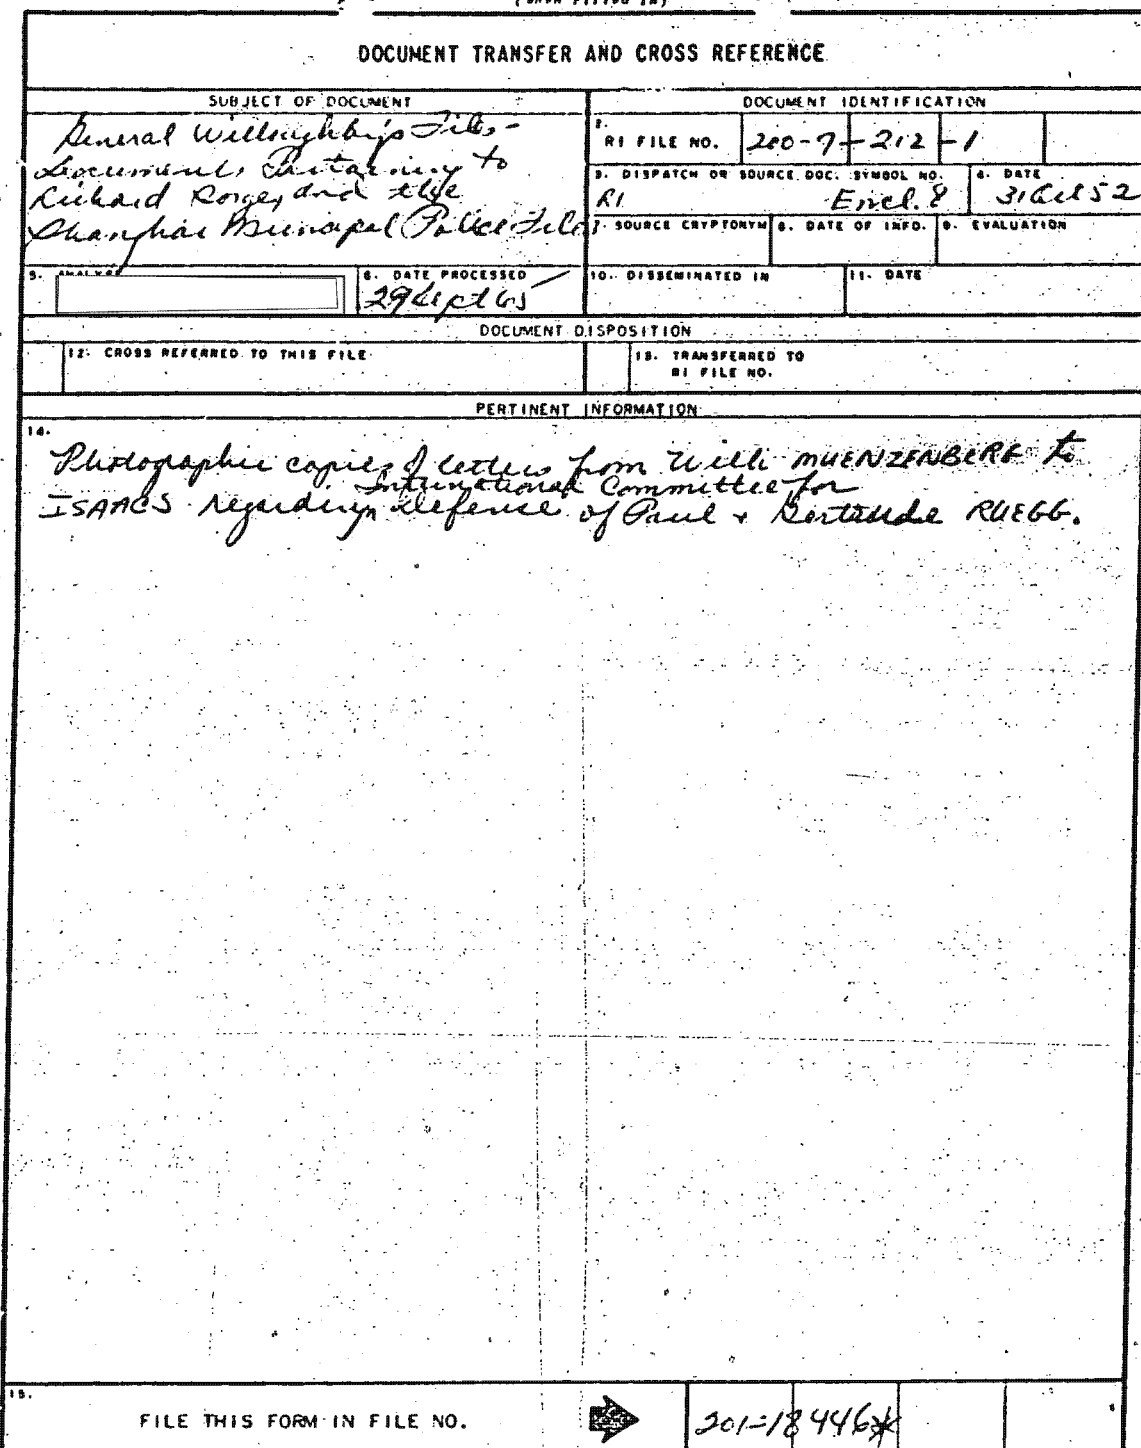 (WHEN FILLED IN)
DOCUMENT TRANSFER AND CROSS REFERENCE
SUBJECT OF DOCUMENT
General Willoughby's Files -
Documents Pertaining to
Richard Sorge, and the
Shanghai Municipal Police Files
DOCUMENT IDENTIFICATION
2.
RI FILE NO. 200-7-212-1
3. DISPATCH OR SOURCE DOC. SYMBOL NO.
RI Encl. 8
4. DATE
31 Oct 52
7. SOURCE CRYPTONYM
8. DATE OF INFO.
9. EVALUATION
5. ANALYST
6. DATE PROCESSED
29 Sept 65
10. DISSEMINATED IN
11. DATE
DOCUMENT DISPOSITION
12. CROSS REFERRED TO THIS FILE
13. TRANSFERRED TO
RI FILE NO.
PERTINENT INFORMATION
14.
Photographic copies of letters from Willi MUENZENBERG to
International Committee for
ISAACS regarding defense of Paul + Gertrude RUEGG.
15.
FILE THIS FORM IN FILE NO.
201-18446*